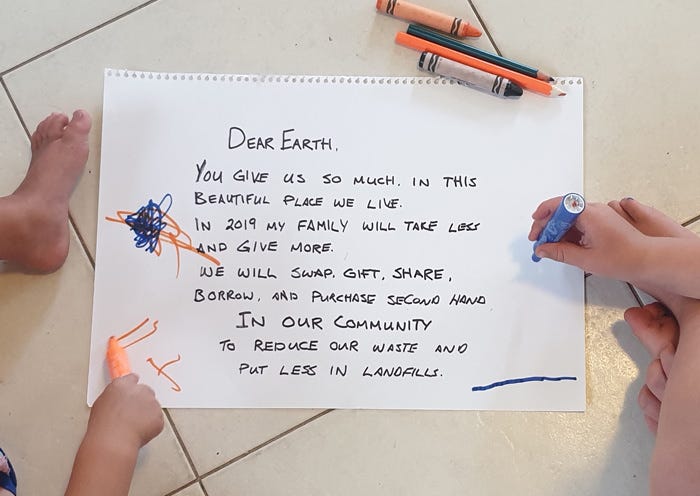 DEAR EARTH,
YOU GIVE US SO MUCH. IN THIS
BEAUTIFUL PLACE WE LIVE.
IN 2019 MY FAMILY WILL TAKE LESS
AND GIVE MORE.
WE WILL SWAP, GIFT, SHARE,
BORROW, AND PURCHASE SECOND HAND
IN OUR COMMUNITY
TO REDUCE OUR WASTE AND
PUT LESS IN LANDFILLS.